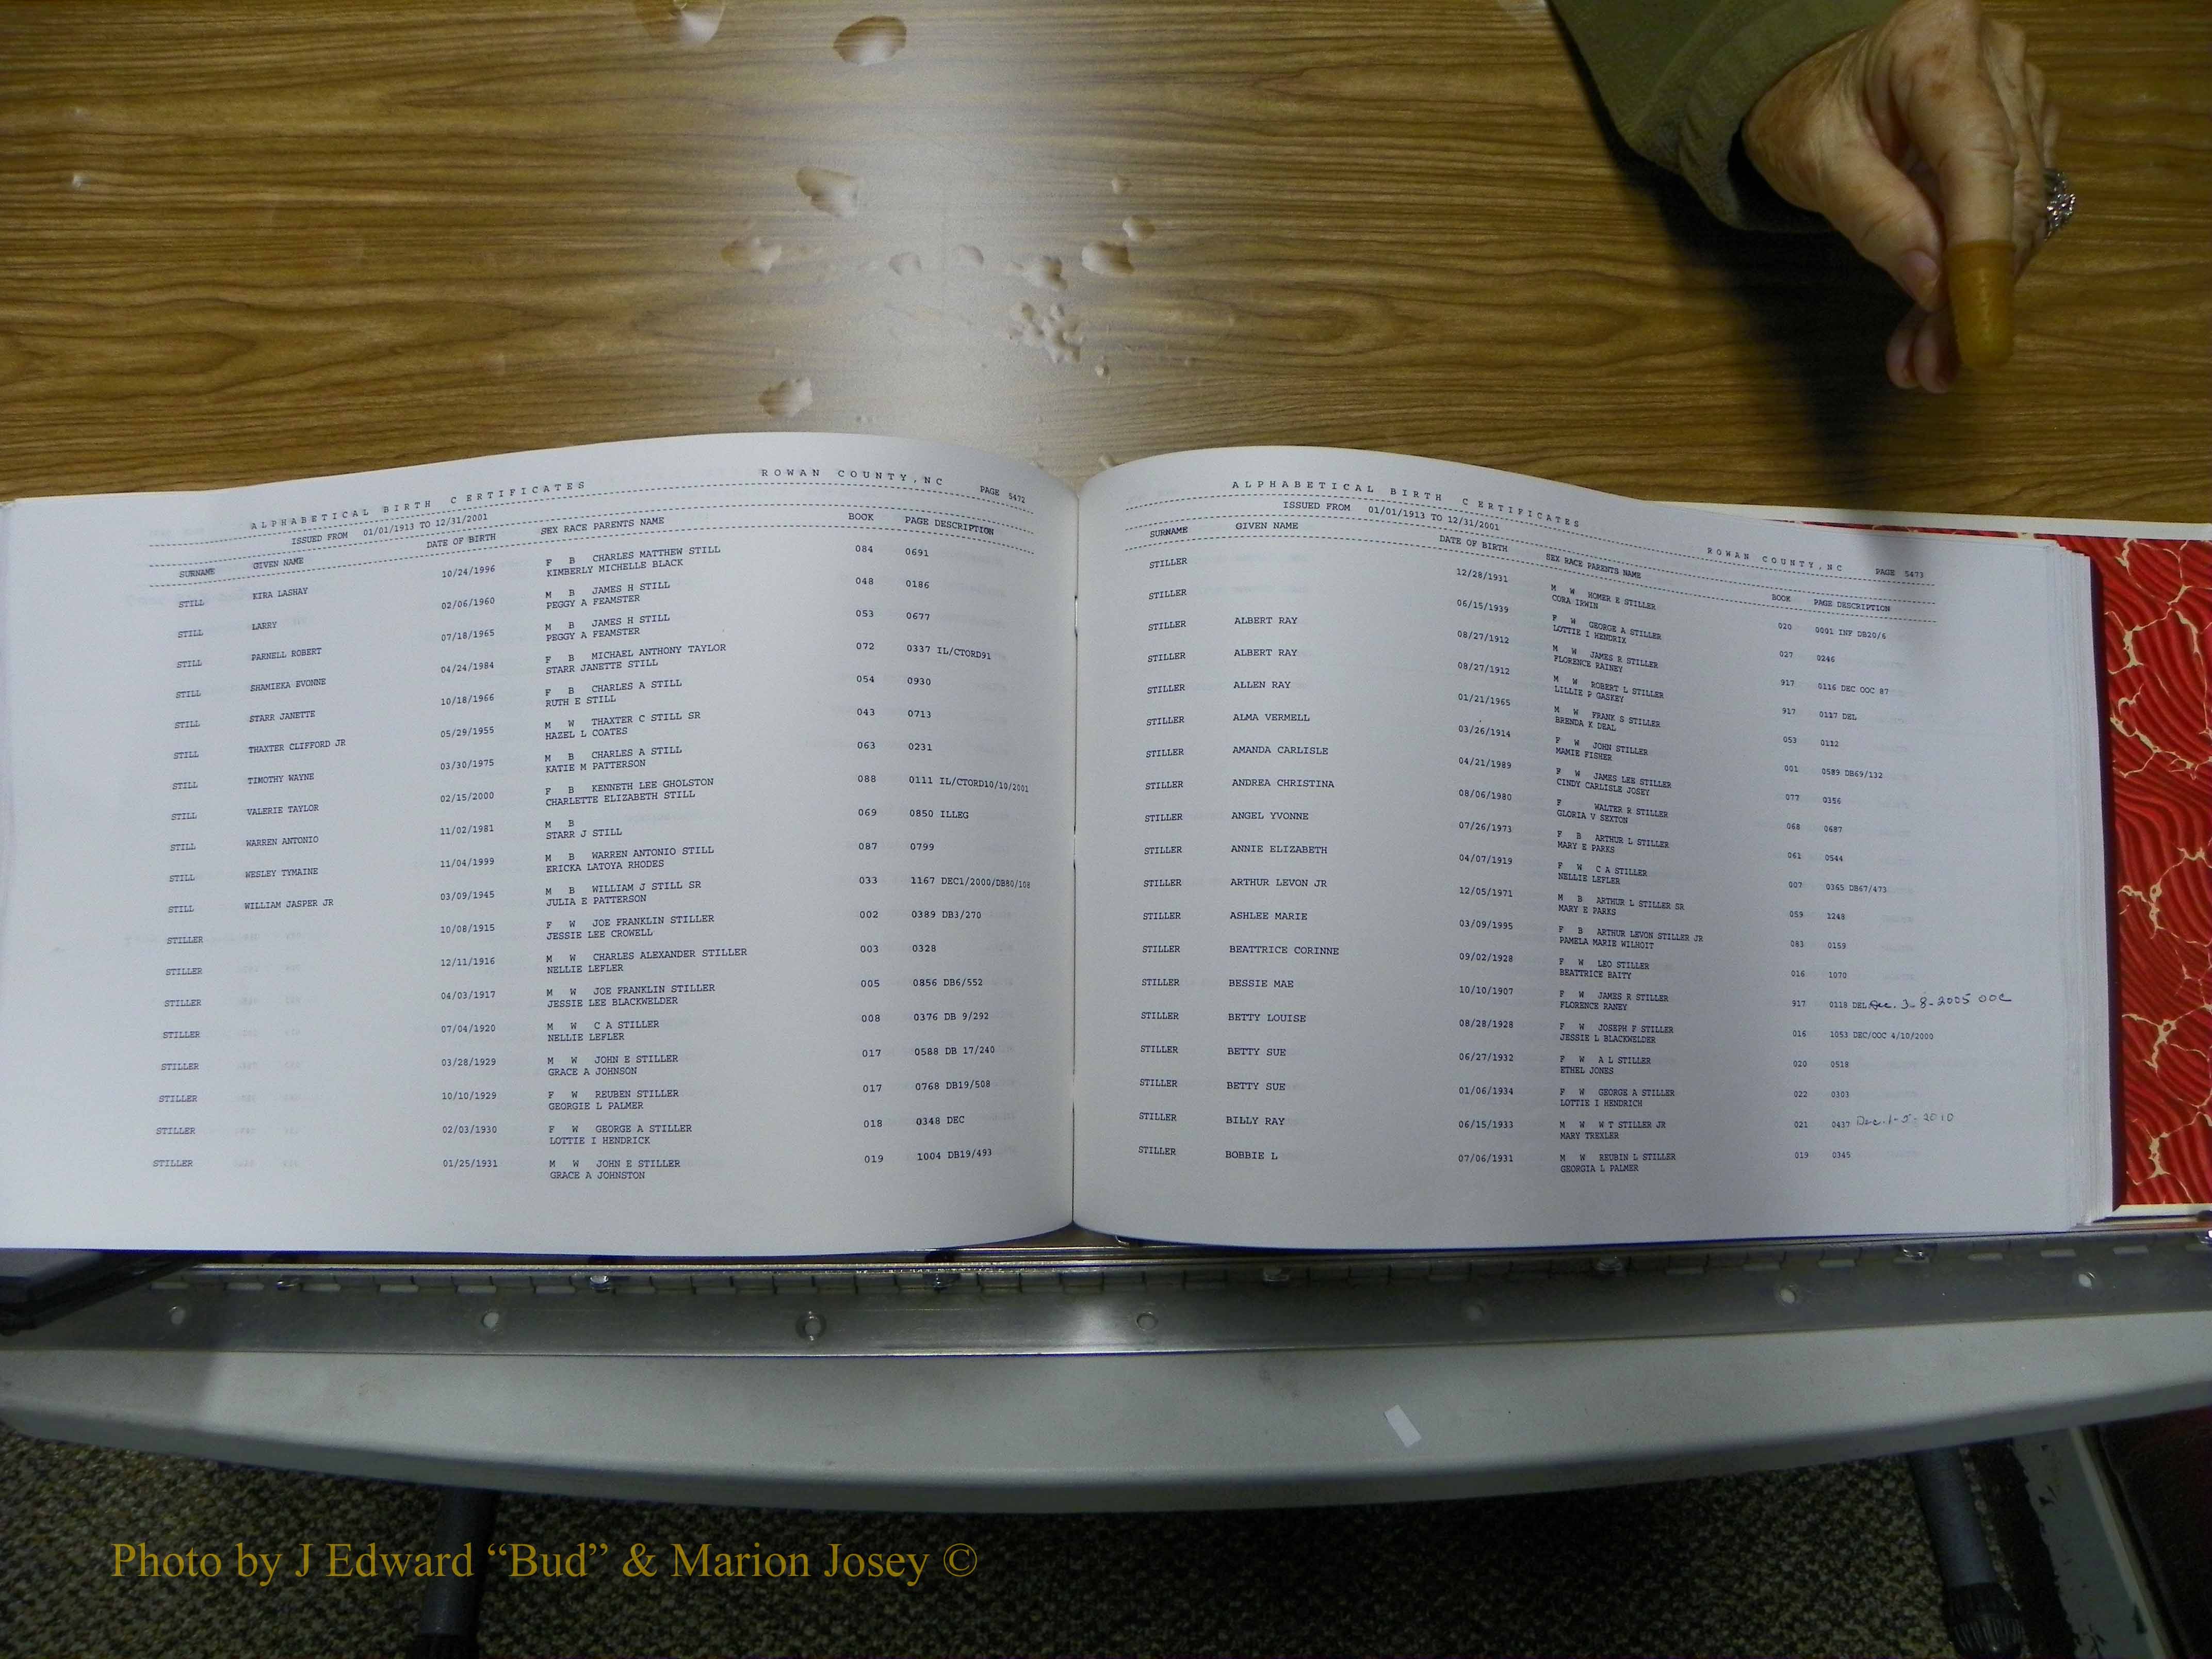 ALPHABETICAL BIRTH CERTIFICATES ROWAN COUNTY, NC PAGE 5472
ISSUED FROM 01/01/1913 TO 12/31/2001
SURNAME GIVEN NAME DATE OF BIRTH SEX RACE PARENTS NAME BOOK PAGE DESCRIPTION
STILL KIRA LASHAY 10/24/1996 F B CHARLES MATTHEW STILL 084 0691
KIMBERLY MICHELLE BLACK
STILL LARRY 02/06/1960 M B JAMES H STILL 048 0186
PEGGY A FEAMSTER
STILL PARNELL ROBERT 07/18/1965 M B JAMES H STILL 053 0677
PEGGY A FEAMSTER
STILL SHAMIEKA EVONNE 04/24/1984 F B MICHAEL ANTHONY TAYLOR 072 0337 IL/CTORD91
STARR JANETTE STILL
STILL STARR JANETTE 10/18/1966 F B CHARLES A STILL 054 0930
RUTH E STILL
STILL THAXTER CLIFFORD JR 05/29/1955 M W THAXTER C STILL SR 043 0713
HAZEL L COATES
STILL TIMOTHY WAYNE 03/30/1975 M B CHARLES A STILL 063 0231
KATIE M PATTERSON
STILL VALERIE TAYLOR 02/15/2000 F B KENNETH LEE GHOLSTON 088 0111 IL/CTORD10/10/2001
CHARLETTE ELIZABETH STILL
STILL WARREN ANTONIO 11/02/1981 M B 069 0850 ILLEG
STARR J STILL
STILL WESLEY TYMAINE 11/04/1999 M B WARREN ANTONIO STILL 087 0799
ERICKA LATOYA RHODES
STILL WILLIAM JASPER JR 03/09/1945 M B WILLIAM J STILL SR 033 1167 DEC1/2000/DB80/108
JULIA E PATTERSON
STILLER 10/08/1915 F W JOE FRANKLIN STILLER 002 0389 DB3/270
JESSIE LEE CROWELL
STILLER 12/11/1916 M W CHARLES ALEXANDER STILLER 003 0328
NELLIE LEFLER
STILLER 04/03/1917 M W JOE FRANKLIN STILLER 005 0856 DB6/552
JESSIE LEE BLACKWELDER
STILLER 07/04/1920 M W C A STILLER 008 0376 DB 9/292
NELLIE LEFLER
STILLER 03/28/1929 M W JOHN E STILLER 017 0588 DB 17/240
GRACE A JOHNSON
STILLER 10/10/1929 F W REUBEN STILLER 017 0768 DB19/508
GEORGIE L PALMER
STILLER 02/03/1930 F W GEORGE A STILLER 018 0348 DEC
LOTTIE I HENDRICK
STILLER 01/25/1931 M W JOHN E STILLER 019 1004 DB19/493
GRACE A JOHNSTON
ALPHABETICAL BIRTH CERTIFICATES ROWAN COUNTY, NC PAGE 5473
ISSUED FROM 01/01/1913 TO 12/31/2001
SURNAME GIVEN NAME DATE OF BIRTH SEX RACE PARENTS NAME BOOK PAGE DESCRIPTION
STILLER 12/28/1931 M W HOMER E STILLER 020 0001 INF DB20/6
CORA IRWIN
STILLER 06/15/1939 F W GEORGE A STILLER 027 0246
LOTTIE I HENDRIX
STILLER ALBERT RAY 08/27/1912 M W JAMES R STILLER 917 0116 DEC OOC 87
FLORENCE RAINEY
STILLER ALBERT RAY 08/27/1912 M W ROBERT L STILLER 917 0117 DEL
LILLIE P GASKEY
STILLER ALLEN RAY 01/21/1965 M W FRANK S STILLER 053 0112
BRENDA K DEAL
STILLER ALMA VERMELL 03/26/1914 F W JOHN STILLER 001 0589 DB69/132
MAMIE FISHER
STILLER AMANDA CARLISLE 04/21/1989 F W JAMES LEE STILLER 077 0356
CINDY CARLISLE JOSEY
STILLER ANDREA CHRISTINA 08/06/1980 F WALTER R STILLER 068 0687
GLORIA V SEXTON
STILLER ANGEL YVONNE 07/26/1973 F B ARTHUR L STILLER 061 0544
MARY E PARKS
STILLER ANNIE ELIZABETH 04/07/1919 F W C A STILLER 007 0365 DB67/473
NELLIE LEFLER
STILLER ARTHUR LEVON JR 12/05/1971 M B ARTHUR L STILLER SR 059 1248
MARY E PARKS
STILLER ASHLEE MARIE 03/09/1995 F B ARTHUR LEVON STILLER JR 083 0159
PAMELA MARIE WILHOIT
STILLER BEATTRICE CORINNE 09/02/1928 F W LEO STILLER 016 1070
BEATTRICE BAITY
STILLER BESSIE MAE 10/10/1907 F W JAMES R STILLER 917 0118 DEL Dec. 3-8-2005 OOC
FLORENCE RANEY
STILLER BETTY LOUISE 08/28/1928 F W JOSEPH F STILLER 016 1053 DEC/OOC 4/10/2000
JESSIE L BLACKWELDER
STILLER BETTY SUE 06/27/1932 F W A L STILLER 020 0518
ETHEL JONES
STILLER BETTY SUE 01/06/1934 F W GEORGE A STILLER 022 0303
LOTTIE I HENDRICH
STILLER BILLY RAY 06/15/1933 M W W T STILLER JR 021 0437 Dec. 1-5-2010
MARY TREXLER
STILLER BOBBIE L 07/06/1931 M W REUBIN L STILLER 019 0345
GEORGIA L PALMER
Photo by J Edward “Bud” & Marion Josey ©